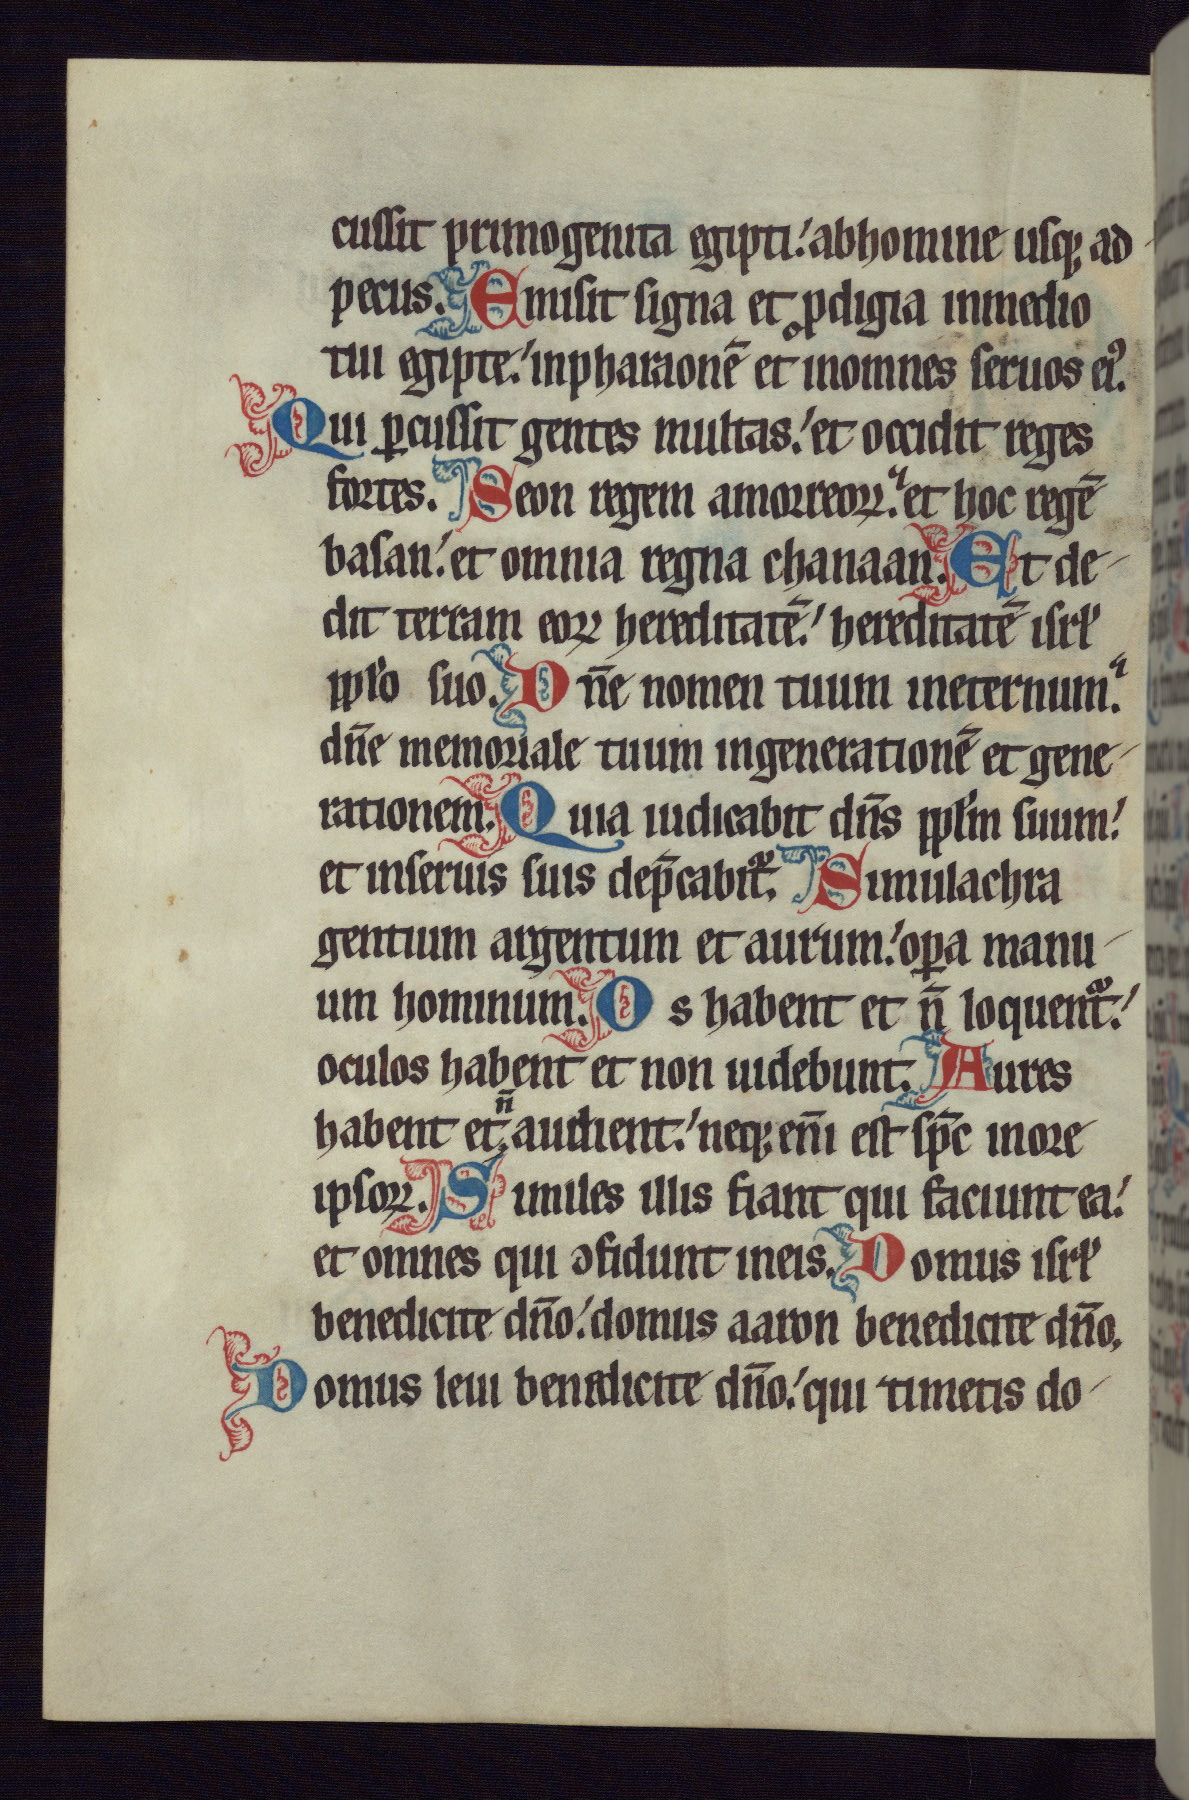 cussit primogenita egipti. abhomine usq; ad
pecus. Emisit signa et pdigia inmedio
tui egipte. inpharaonē et inomnes seruos ei᾿.
Qui ꝑcussit gentes multas. et occidit reges
fortes. Seon regem amorreoꝝ. et hoc regē
basan. et omnia regna chanaan. Et de-
dit terram eoꝝ hereditatē. hereditatē isrł
pplo suo. Dn̄e nomen tuum ineternum.
dn̄e memoriale tuum ingenerationē et gene-
rationem. Quia iudicabit dn̄s pplm suum.
et inseruis suis dep̄cabit᷑. Simulachra
gentium argentum et aurum. oꝑa manu-
um hominum. Os habent et n̄ loquent᷑.
oculos habent et non uidebunt. Aures
habent et n̄ audient. neq; en̄i est sp̄c inore
ipsoꝝ. Similes illis fiant qui faciunt ea.
et omnes qui ꝯfidunt ineis. Domus isrł
benedicite dn̄o. domus aaron benedicite dn̄o.
Domus leui benedicite dn̄o. qui timetis do-